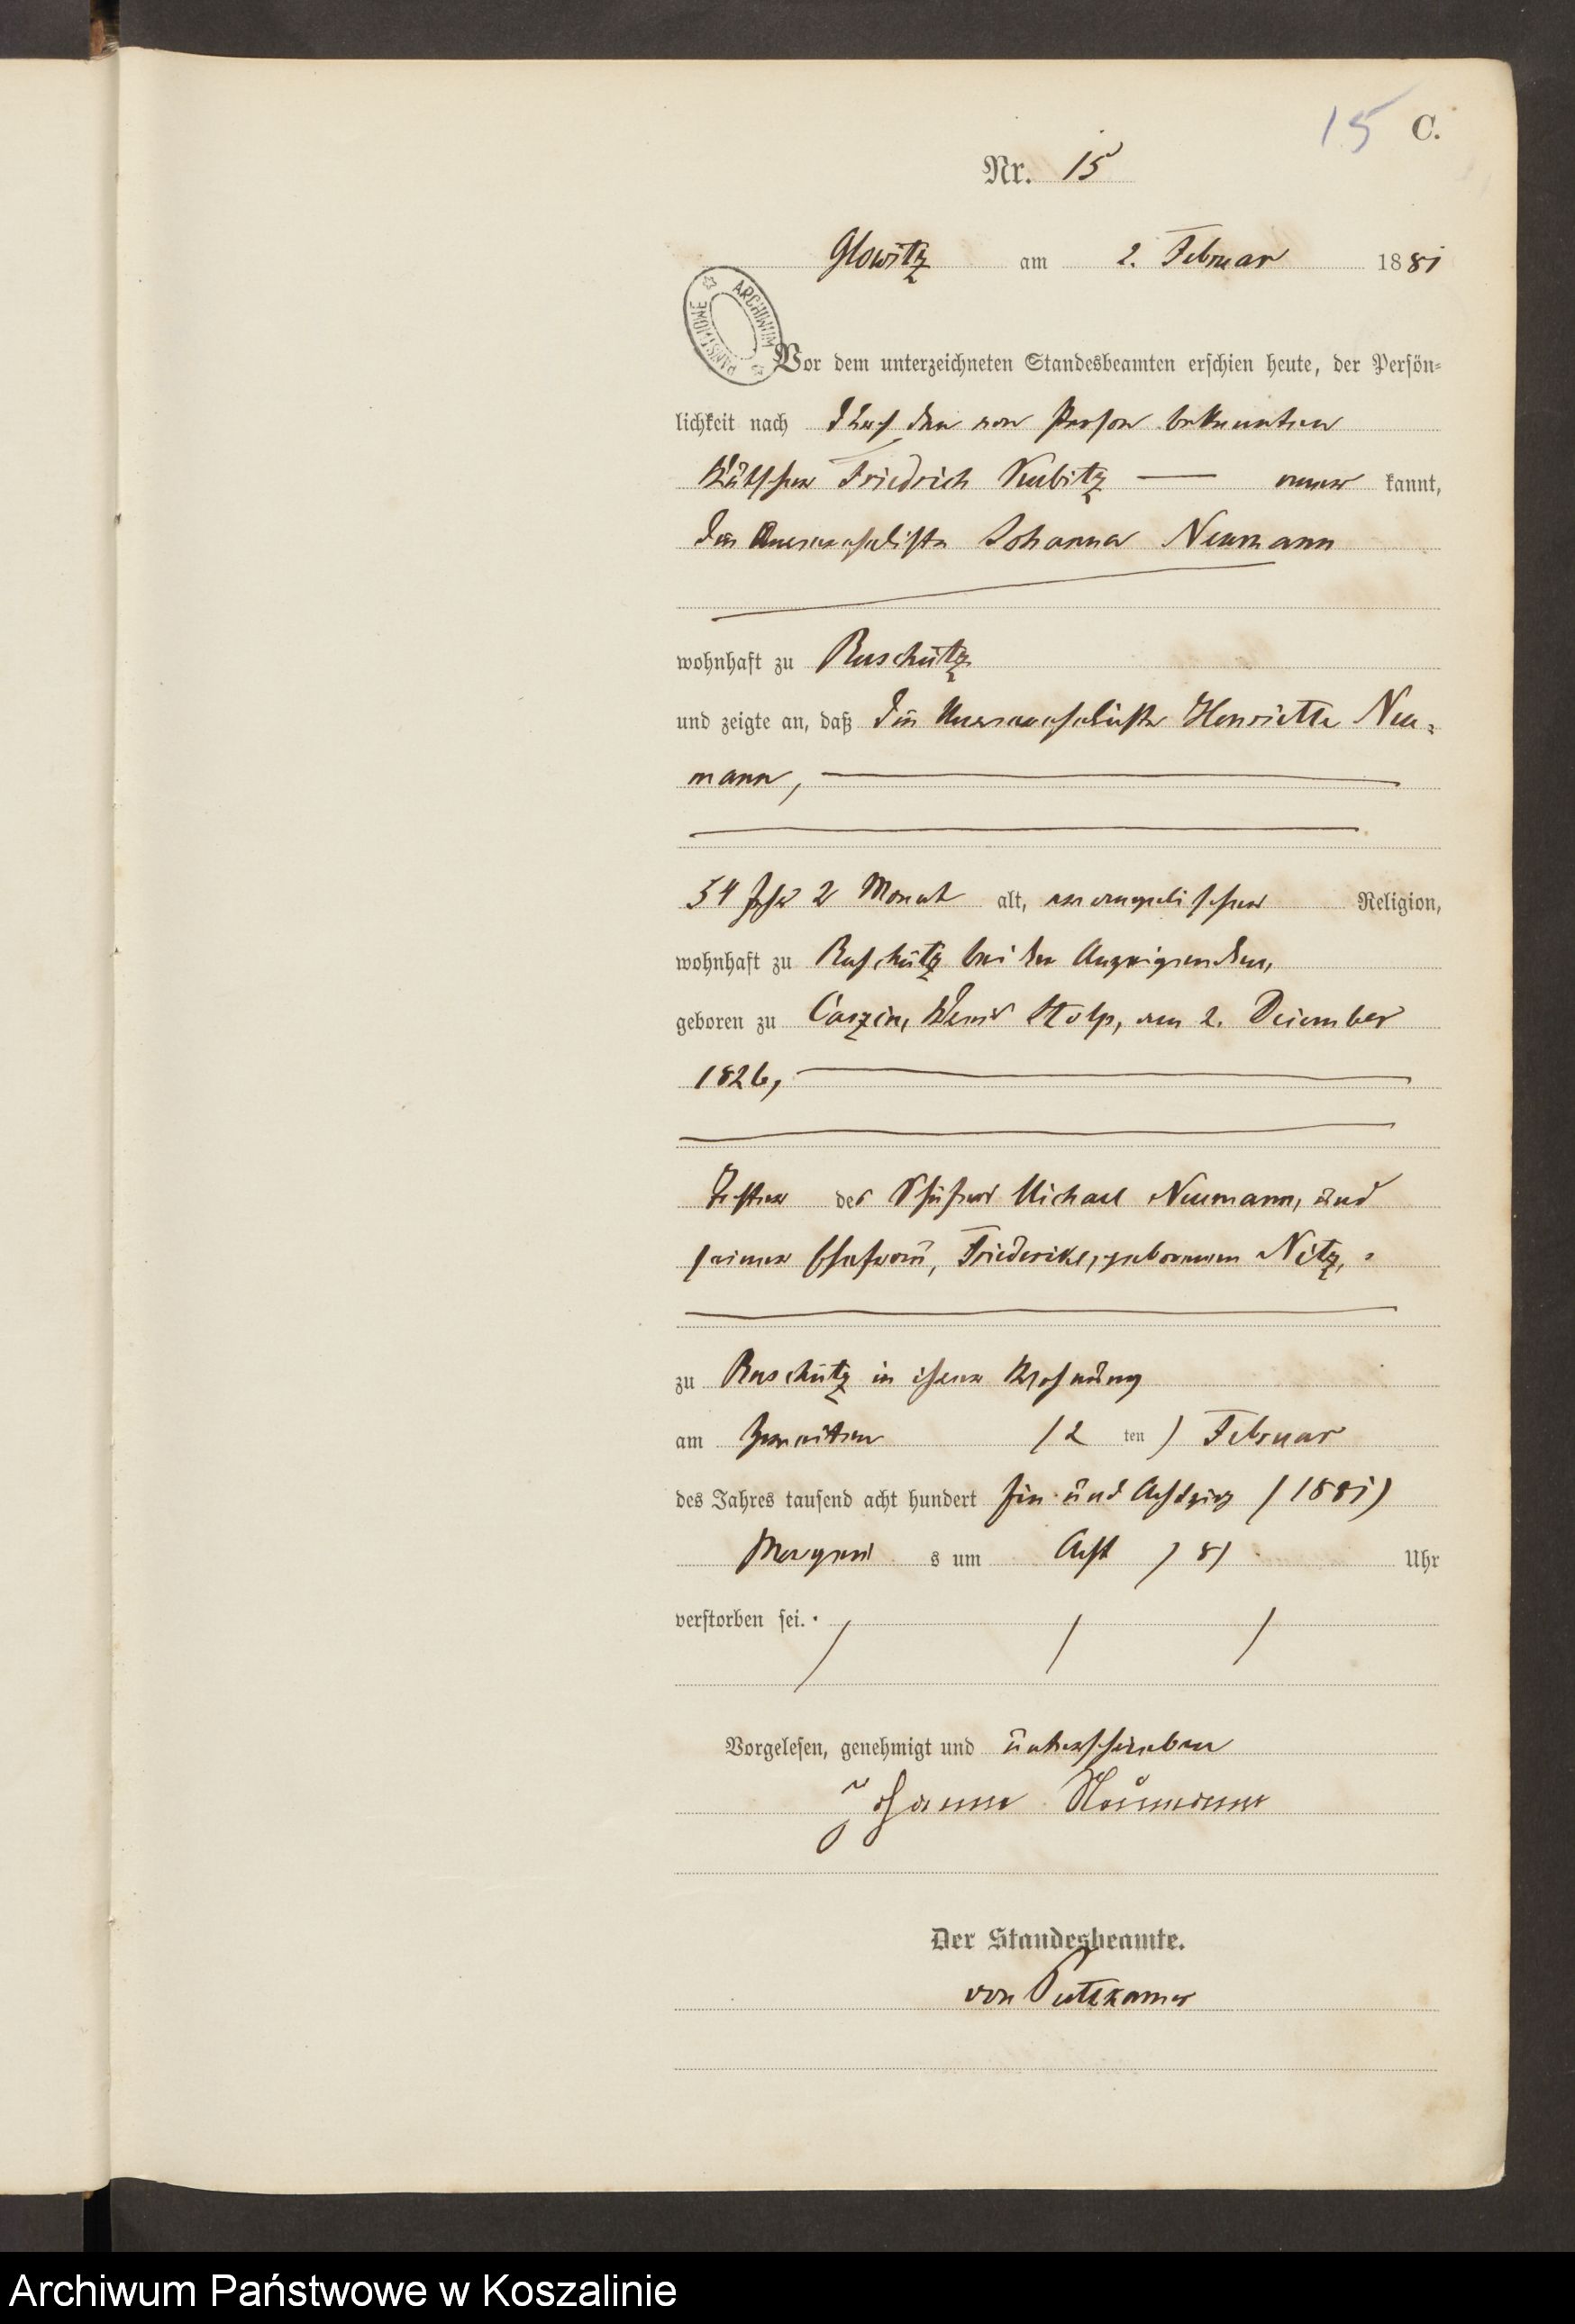 15 C.
Nr. 15
Glowitz am 2. Februar 1881
ARCHIWUM PAŃSTWOWE
Vor dem unterzeichneten Standesbeamten erschien heute, der Persön-
lichkeit nach durch den von Person bekannten
Käthner Friedrich Kubitz — aner kannt,
die Unverehelichte Johanna Neumann
wohnhaft zu Ruschütz
und zeigte an, daß die Unverehelichte Henriette Neu-
mann,
54 Jahr 2 Monat alt, evangelischer Religion,
wohnhaft zu Ruschütz bei der Anzeigenden,
geboren zu Coszin, Kreis Stolp, am 2. December
1826,
Tochter des Schäfers Michael Neumann, und
seiner Ehefrau, Friederike, geborenen Nitz,
zu Ruschütz in ihrer Wohnung
am zweiten (2 ten) Februar
des Jahres tausend acht hundert Ein und Achtzig (1881)
Morgens s um Acht (8) Uhr
verstorben sei.
Vorgelesen, genehmigt und unterschrieben
Johanna Neumann
Der Standesbeamte.
von Puttkamer
Archiwum Państwowe w Koszalinie